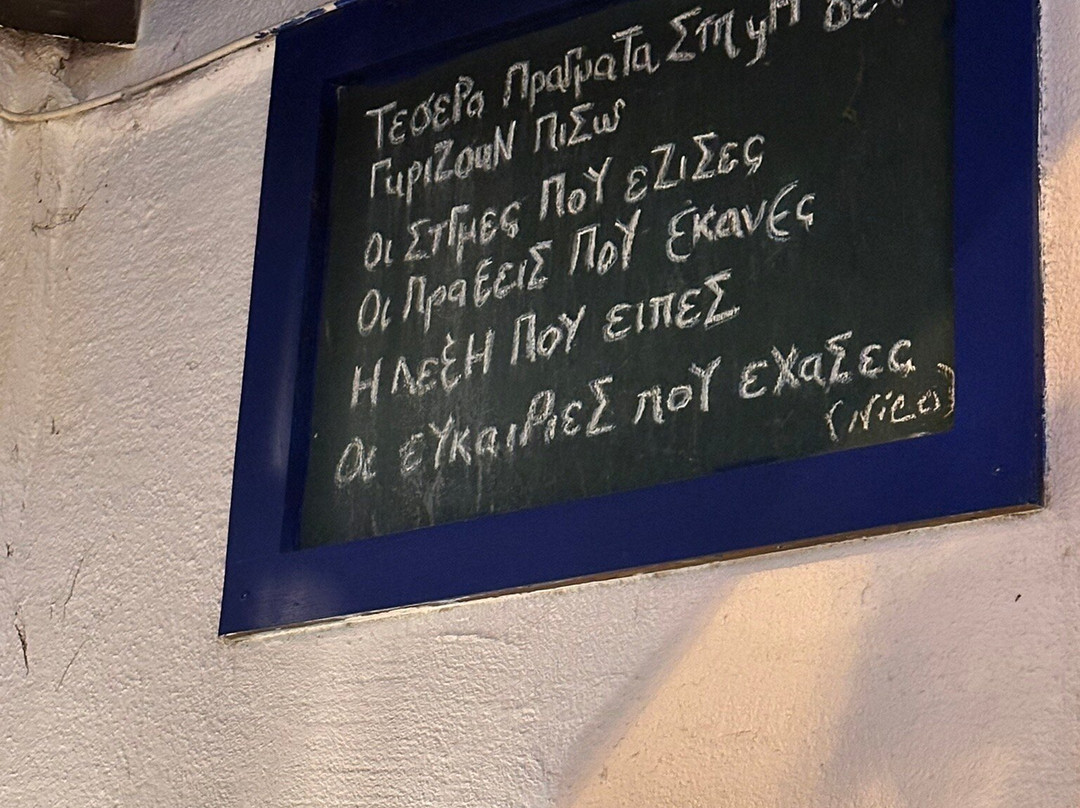 Τεσερα Πραγματα Στη γη δε
Γυριζουν Πισω
Οι Στιγμες Που εζισες
Οι Πραξεις Που Εκανες
Η Λεξη Που ειπες
Οι ευκαιριες που εχασες
(Nico)